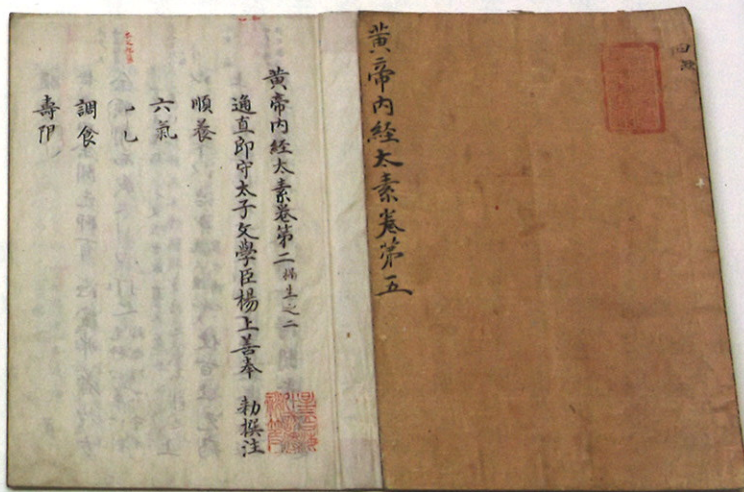 黄帝内經太素卷第五
黄帝内經太素卷第二 攝生之二
通直郎守太子文學臣楊上善奉 勅撰注
順養
六氣
九氣
調食
壽限